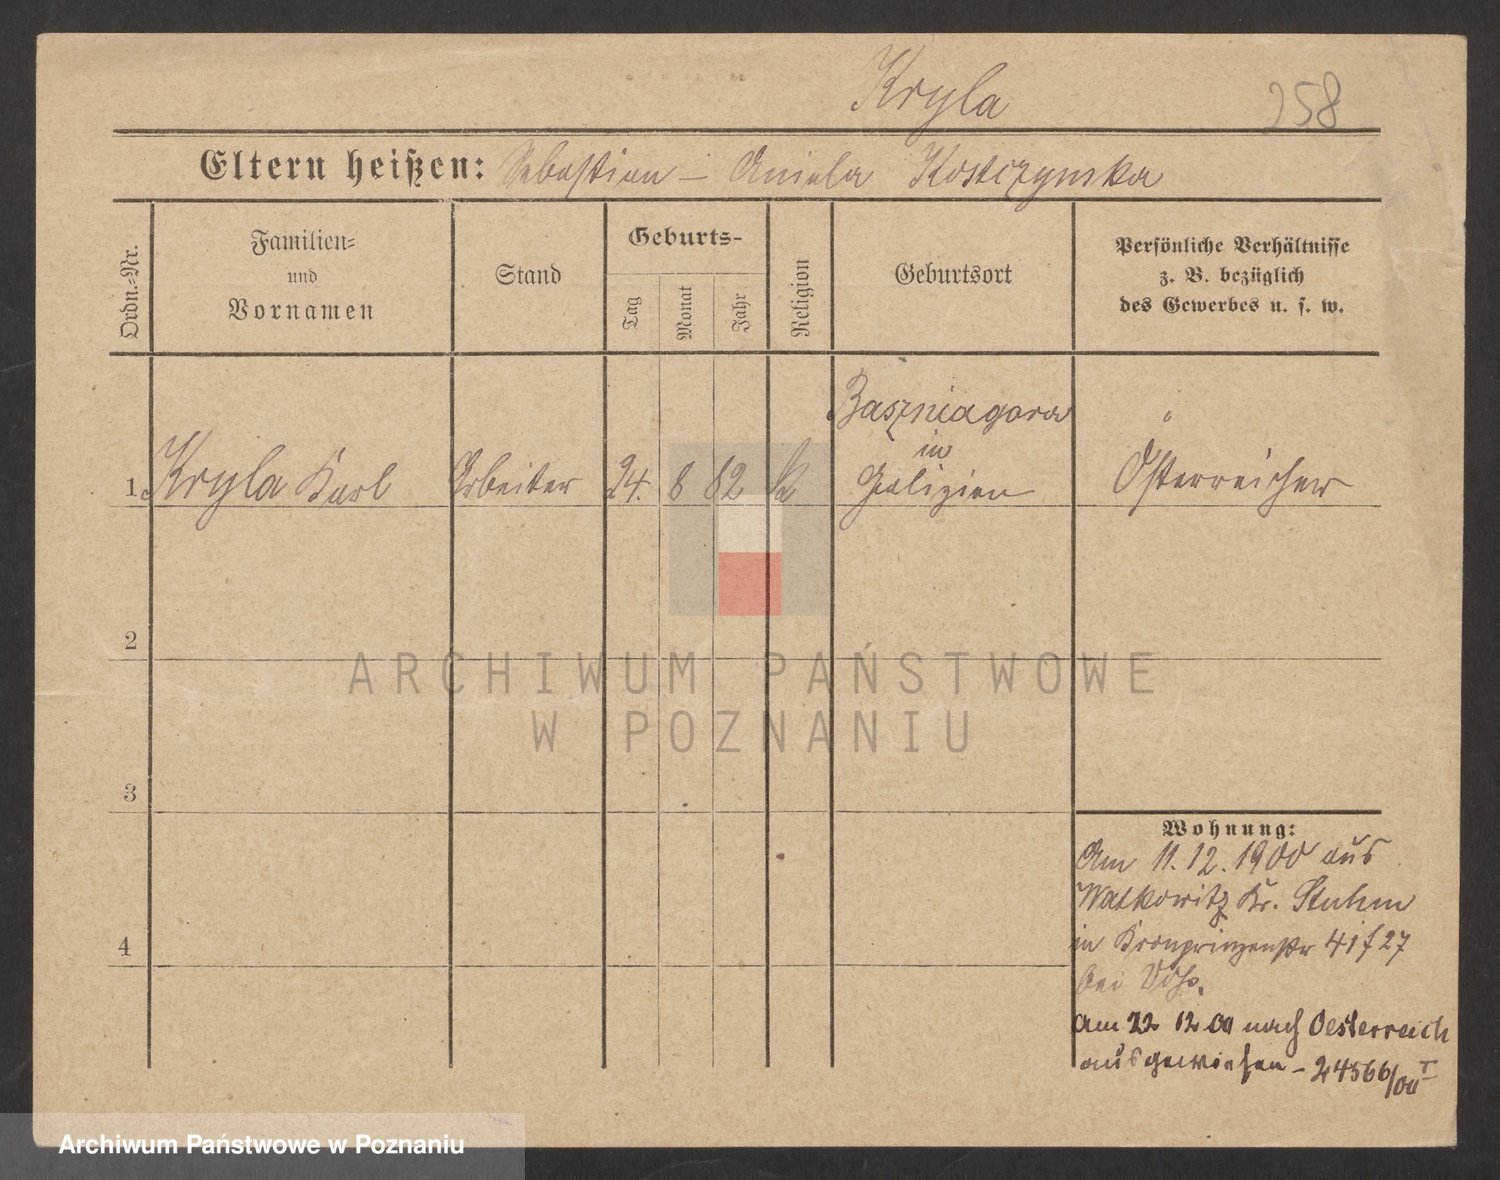 Kryla
258
Eltern heißen: Sebastian – Aniela Kostczynska
Ordn.-Nr.
Familien-
und
Vornamen
Stand
Geburts-
Tag
Monat
Jahr
Religion
Geburtsort
Persönliche Verhältnisse
z. B. bezüglich
des Gewerbes u. s. w.
1. Kryla Karl
Arbeiter
24.
8
82
ka
Baszniagora
in
Galizien
Österreicher
2
3
4
Wohnung:
Am 11.12.1900 aus
Watkowitz Kr. Stuhm
in Kronprinzenstr 41 f 27
bei
am 22 12 00 nach Oesterreich
ausgewiesen – 24566/00 I
ARCHIWUM PAŃSTWOWE
W POZNANIU
Archiwum Państwowe w Poznaniu